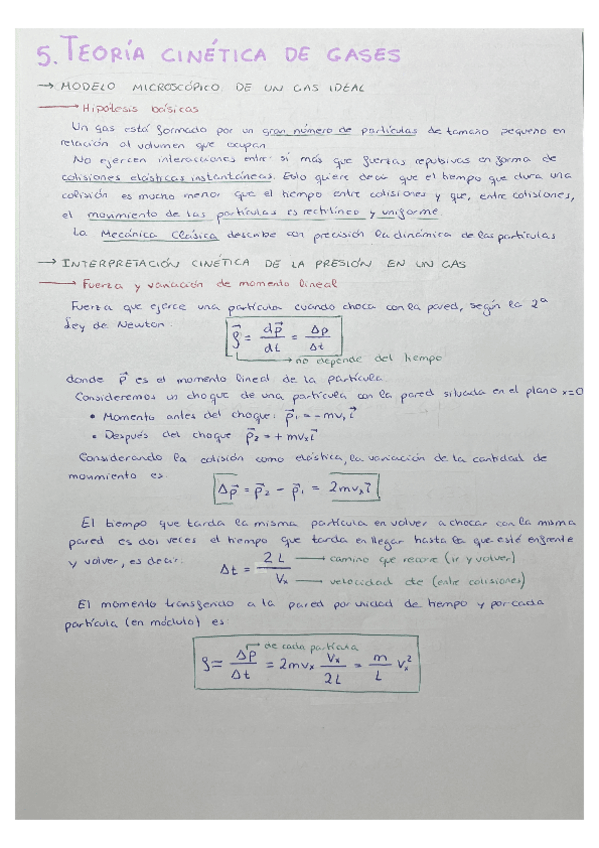 5. TEORÍA CINÉTICA DE GASES
→ MODELO MICROSCÓPICO DE UN GAS IDEAL
→ Hipótesis básicas
Un gas está formado por un gran número de partículas de tamaño pequeño en
relación al volumen que ocupan.
No ejercen interacciones entre si más que fuerzas repulsivas en forma de
colisiones elásticas instantáneas. Esto quiere decir que el tiempo que dura una
colisión es mucho menor que el tiempo entre colisiones y que, entre colisiones,
el movimiento de las partículas es rectilíneo y uniforme.
La Mecánica Clásica describe con precisión la dinámica de las partículas
→ INTERPRETACIÓN CINÉTICA DE LA PRESIÓN EN UN GAS
→ Fuerza y variación de momento lineal
Fuerza que ejerce una partícula cuando choca con la pared, según la 2ª
Ley de Newton:
f⃗ = dp⃗/dt = Δp/Δt
→ no depende del tiempo
donde p⃗ es el momento lineal de la partícula.
Consideremos un choque de una partícula con la pared situada en el plano x=0
• Momento antes del choque: p⃗₁ = -mvₓ i⃗
• Después del choque p⃗₂ = + mvₓ i⃗
Considerando la colisión como elástica, la variación de la cantidad de
movimiento es:
Δp⃗ = p⃗₂ - p⃗₁ = 2mvₓ i⃗
El tiempo que tarda la misma partícula en volver a chocar con la misma
pared es dos veces el tiempo que tarda en llegar hasta la que esté enfrente
y volver, es decir:
Δt = 2L/Vₓ
→ camino que recorre (ir y volver)
→ velocidad de (entre colisiones)
El momento transferido a la pared por unidad de tiempo y por cada
partícula (en módulo) es:
→ de cada partícula
f = Δp/Δt = 2mvₓ Vₓ/2L = m/L Vₓ²